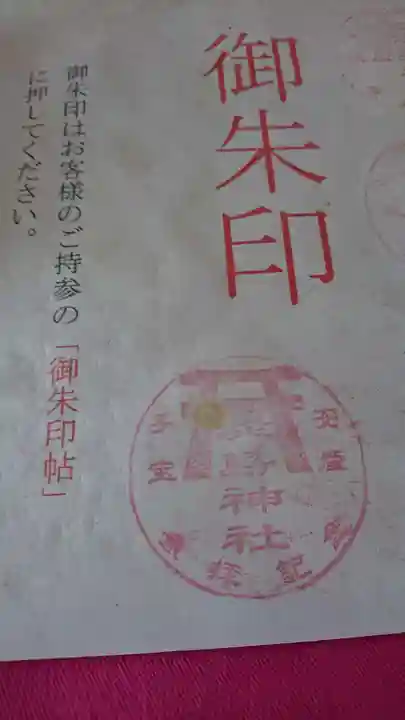 御朱印
御朱印はお客様のご持参の「御朱印帖」
に押してください。
子宝
安産
神社
参拝記念